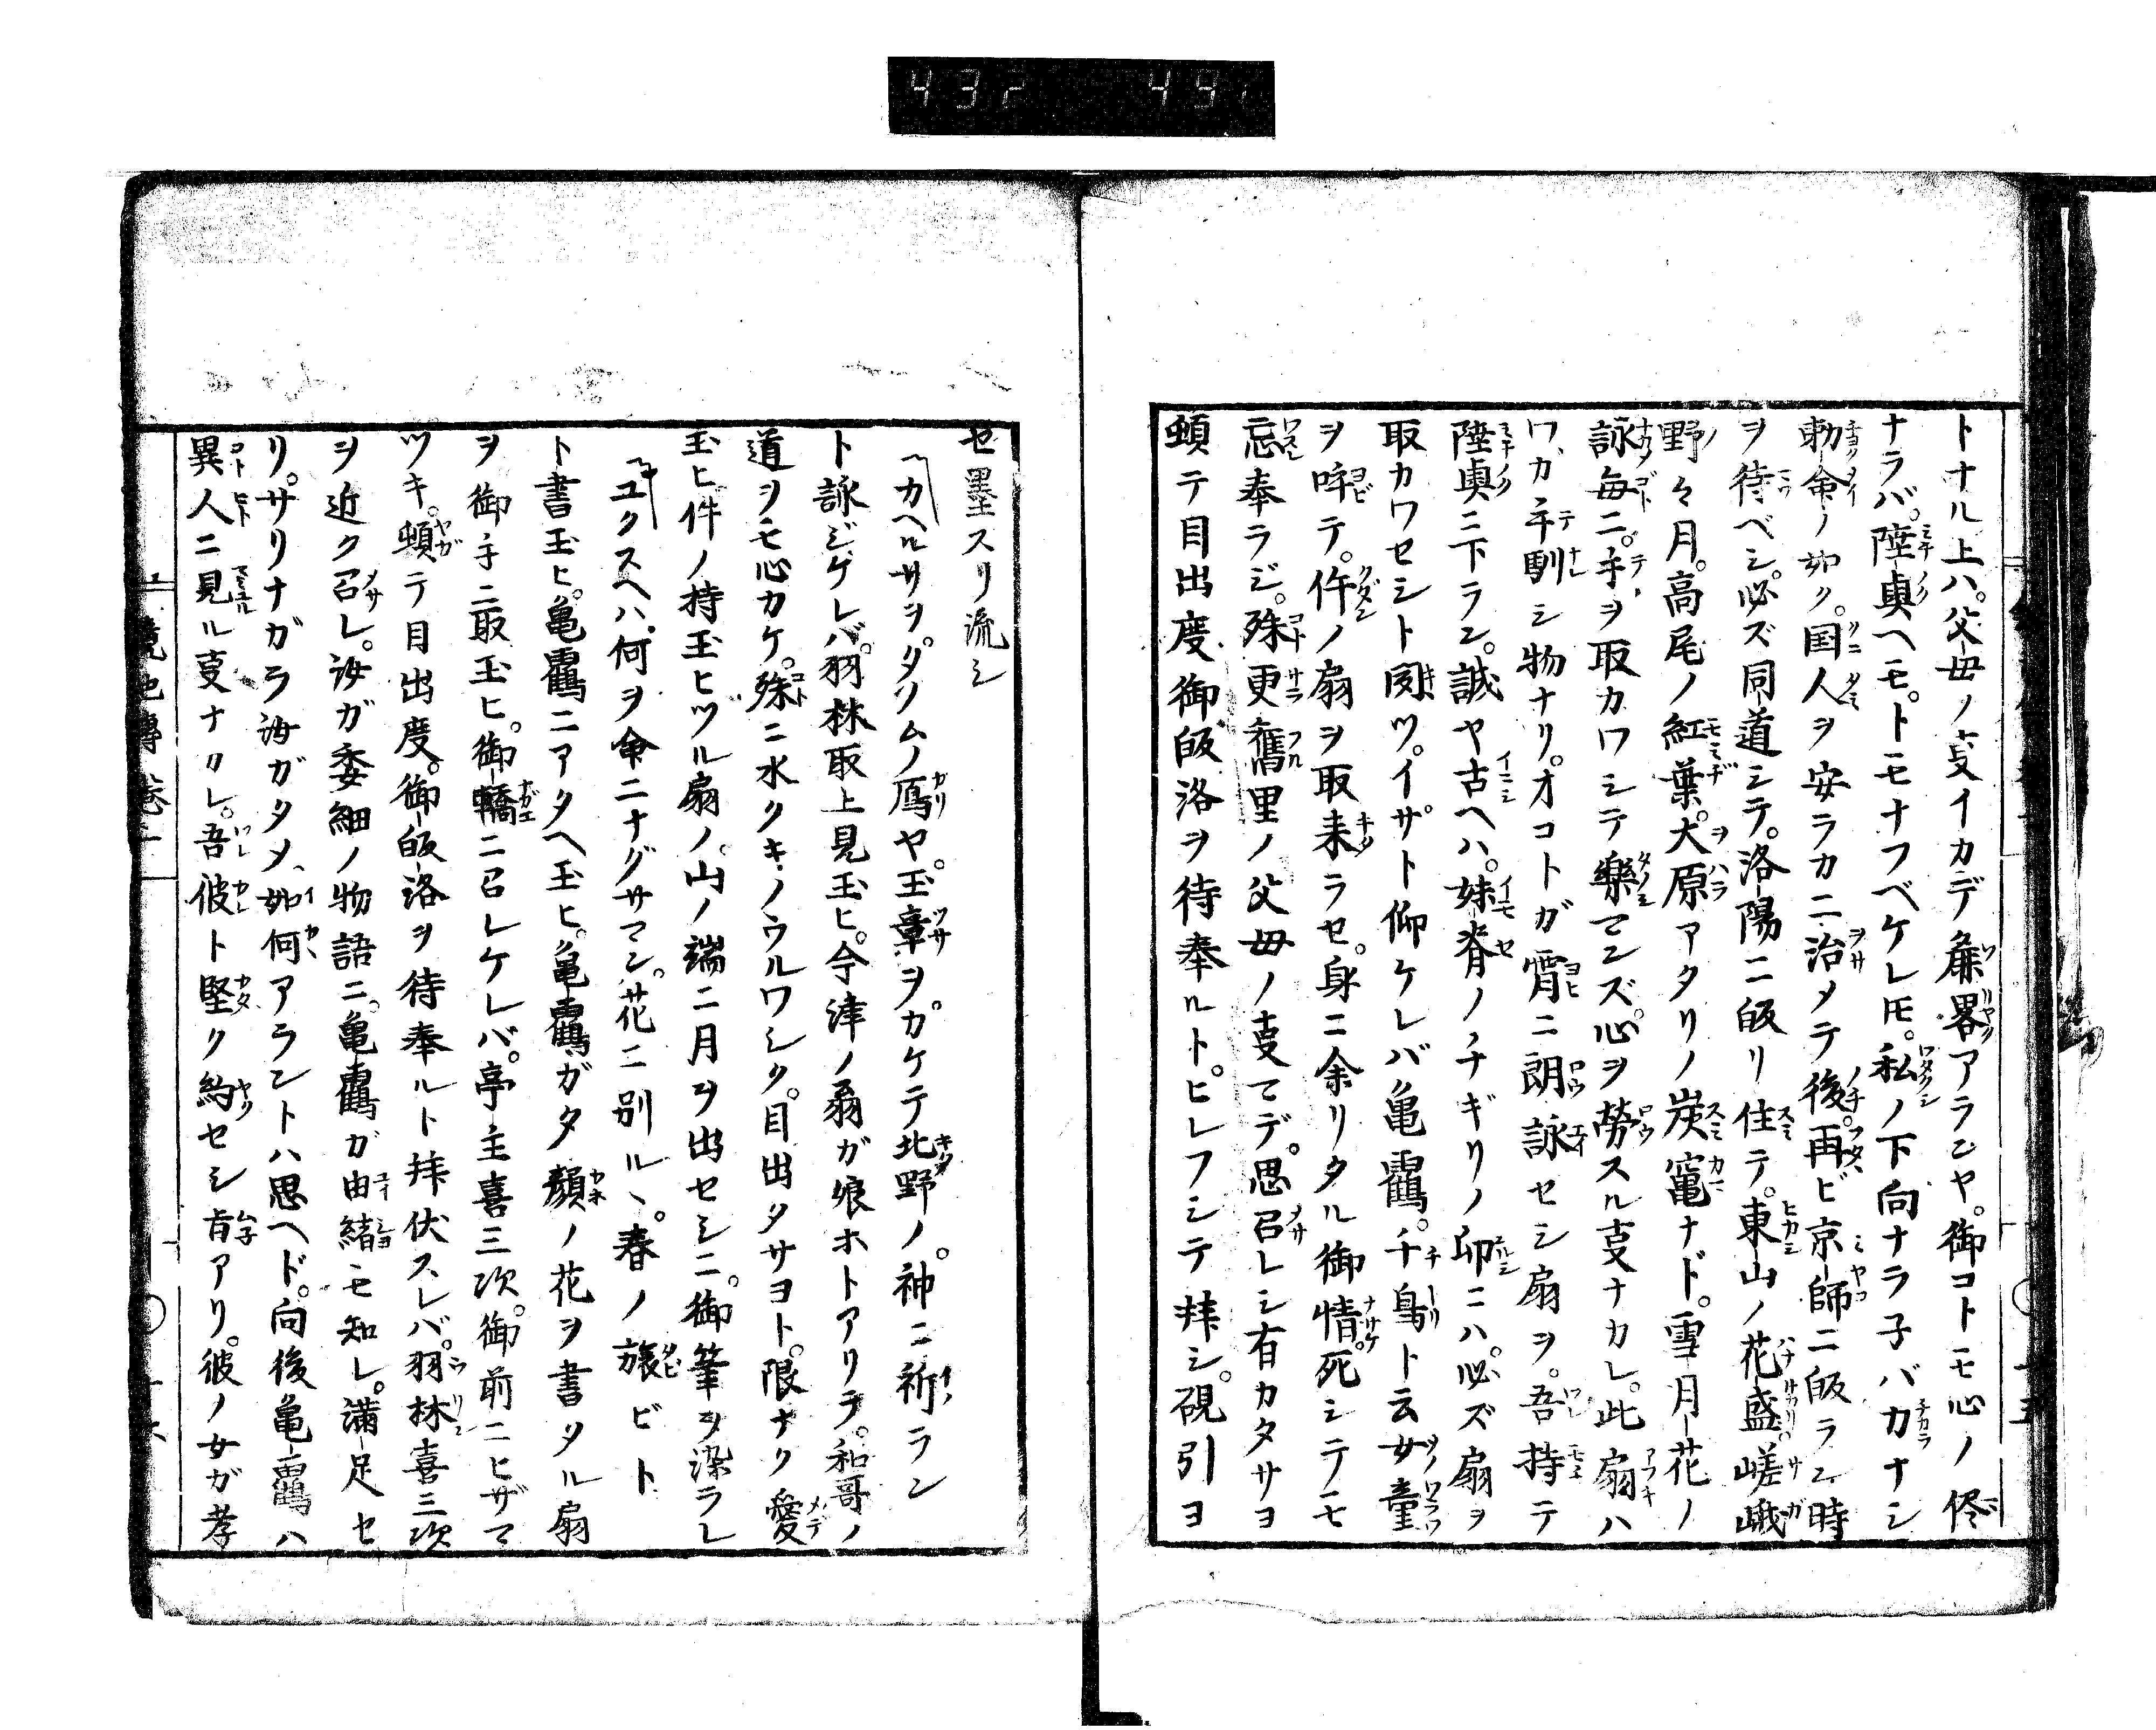 432 491
トナル上ハ。父母ノ叓イカデ麁畧アランヤ。御コトモ心ノ侭
ナラバ。陸奥ヘモ。トモナフベケレ𪜈。私ノ下向ナラ子バカナシ
勅命ノ如ク。国人ヲ安ラカニ治メテ後。再ビ京師ニ皈ラン時
ヲ待ベシ。必ズ同道シテ。洛陽ニ皈リ住テ。東山ノ花盛。嵯峨
野々月。高尾ノ紅葉。大原アタリノ炭竃ナド。雪月花ノ
詠毎ニ。手ヲ取カワシテ楽マンズ。心ヲ労スル叓ナカレ。此扇ハ
ワカ手馴シ物ナリ。オコトガ宵ニ朗詠セシ扇ヲ。吾持テ
陸奥ニ下ラン。誠ヤ古ヘハ。妹脊ノチギリノ印ニハ。必ズ扇ヲ
取カワセシト聞ツ。イザト仰ケレバ亀鶴。千鳥ト云女童
ヲ呼テ。件ノ扇ヲ取来ラセ。身ニ余リタル御情。死シテモ
忘奉ラジ。殊更舊里ノ父母ノ叓マデ。思召レシ有カタサヨ
頓テ目出度御皈洛ヲ待奉ルト。ヒレフシテ拝シ。硯引ヨ
セ墨スリ流シ
カヘルサヲ。タノムノ鴈ヤ。玉章ヲ。カケテ北野ノ。神ニ祈ラン
ト詠ジケレバ。羽林取上見玉ヒ。今津ノ翁ガ娘ホトアリテ。和哥ノ
道ヲモ心カケ。殊ニ水クキノウルワシク。目出タサヨト。限ナク愛
玉ヒ件ノ持玉ヒツル扇ノ。山ノ端ニ月ヲ出セシニ。御筆ヲ染ラレ
ユクスヘハ。何ヲ命ニナグサマン。花ニ別ルヽ。春ノ旅ビト
ト書玉ヒ。亀鶴ニアタヘ玉ヒ。亀鶴ガタ顔ノ花ヲ書タル扇
ヲ御手ニ取玉ヒ。御轎ニ召レケレバ。亭主喜三次。御前ニヒザマ
ツキ。頓テ目出度。御皈洛ヲ待奉ルト拝伏スレバ。羽林喜三次
ヲ近ク召レ。汝ガ委細ノ物語ニ。亀鶴ガ由緒モ知レ。満足セ
リ。サリナガラ汝ガタメ、如何アラントハ思ヘド。向後亀鶴ハ
異人ニ見ル叓ナカレ。吾彼ト堅ク約セシ肯アリ。彼ノ女ガ孝